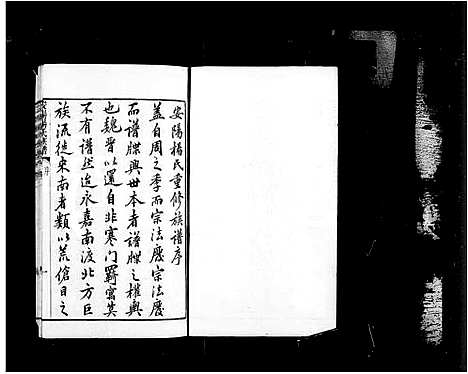 安陽楊氏重修族譜序
蓋自周之季而宗法廢宗法廢
而譜牒興世本者譜牒之權輿
也魏晉以還自非寒門羈寓莫
不有譜然迨永嘉南渡北方巨
族流徙東南者類以荒傖目之